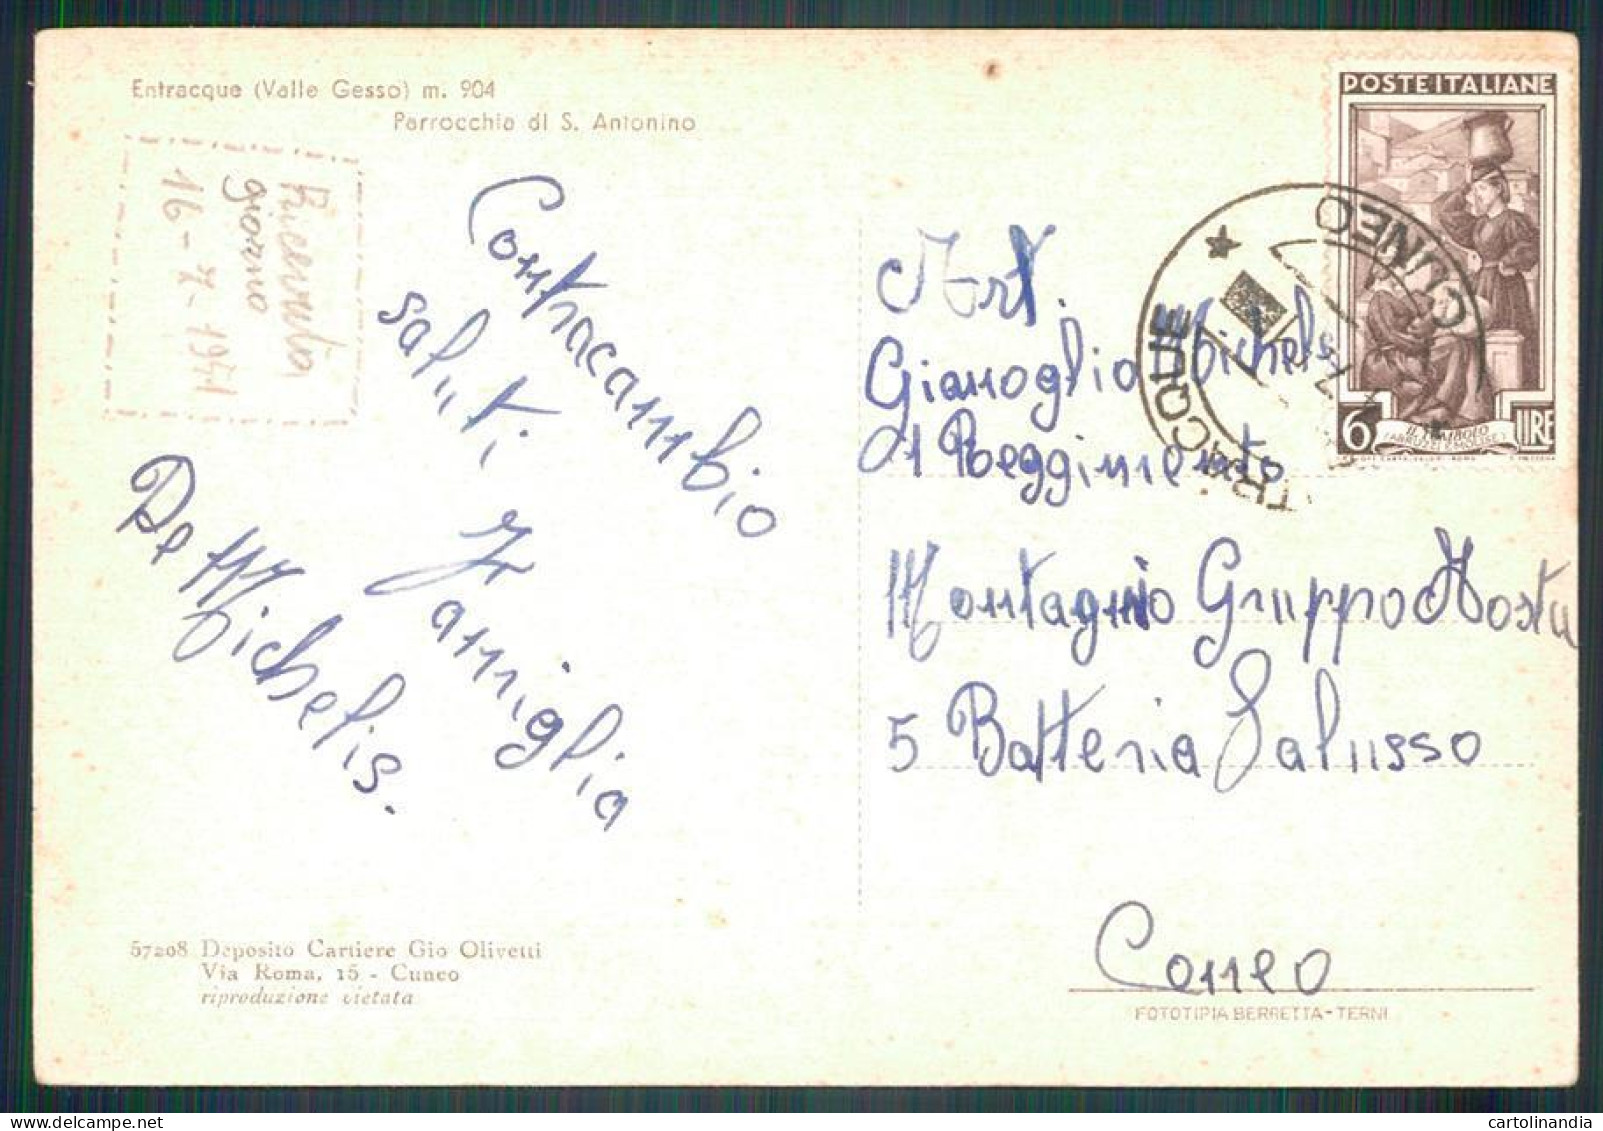 Entracque (Valle Gesso) m. 904
Parrocchia di S. Antonino
Ricevuta
giorno
16-7-1951
Contracambio
saluti
Famiglia
De Michelis.
57208 Deposito Cartiere Gio Olivetti
Via Roma, 15 - Cuneo
riproduzione vietata
POSTE ITALIANE
6 LIRE
IL TOMBOLO
CUNEO
TRACQUE
Art.
Gianoglio Michel
1 Reggimento
Montagnio Gruppo Aosta
5 Batteria Salusso
Coneo
FOTOTIPIA BERRETTA - TERNI
cartolinandia